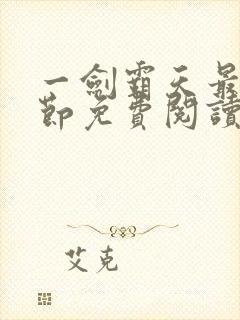 一劍霸天最
節免費閱讀
艾克